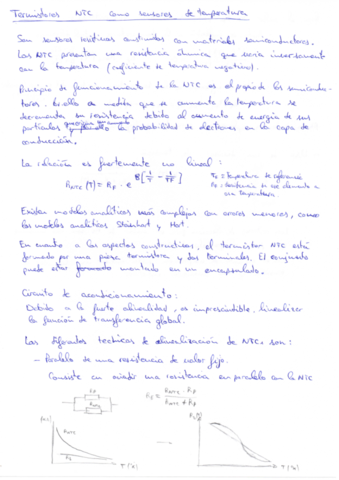 Termistores NTC como sensores de temperatura
Son sensores resistivos construidos con materiales semiconductores.
Las NTC presentan una resistencia óhmica que varía inversamente
con la temperatura (coeficiente de temperatura negativo).
Principio de funcionamiento de la NTC es el propio de los semiconduc-
tores. En ellos a medida que se aumenta la temperatura se
decrementa su resistencia debido al aumento de energía de sus
partículas la probabilidad de electrones en la capa de
conducción.
La relación es fuertemente no lineal:
R_NTC(T) = R_F · e^B[1/T - 1/TF]
Existen modelos analíticos más complejos con errores menores, como
los modelos analíticos Steinhart y Hart.
En cuanto a los aspectos constructivos, el termistor NTC está
formado por una pieza termistora y dos terminales. El conjunto
puede estar formado montado en un encapsulado.
Circuito de acondicionamiento:
Debido a la fuerte alinealidad, es imprescindible linealizar
la función de transferencia global.
Las diferentes técnicas de linealización de NTC, son:
- Paralelo de una resistencia de valor fijo.
Consiste en añadir una resistencia en paralelo con la NTC
R_P
R_NTC
R_NTC
T (°C)
T (°C)